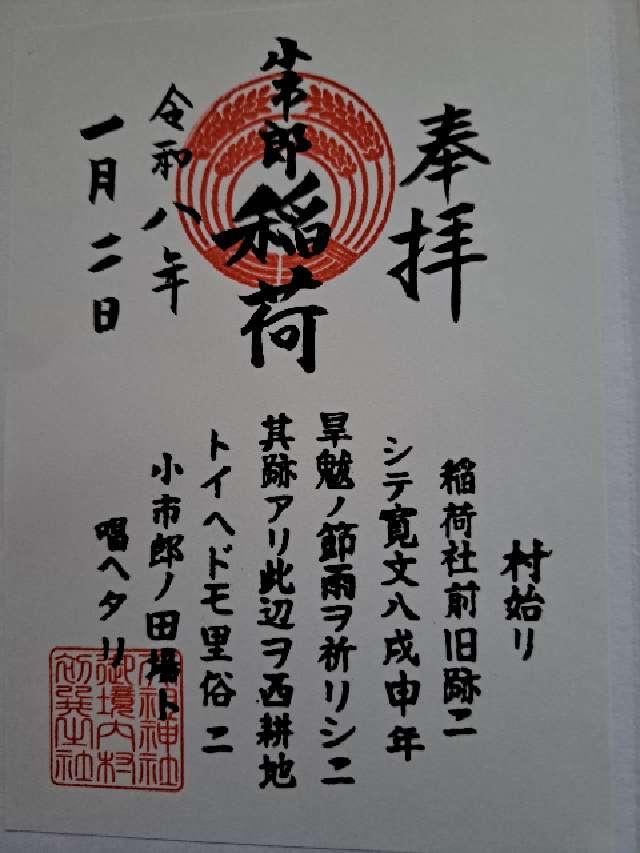 奉拝
小市郎稲荷
令和八年
一月二日
村始リ
稲荷社前旧跡ニ
シテ寛文八戌申年
旱魃ノ節雨ヲ祈リシニ
其跡アリ此辺ヲ西耕地
トイヘドモ里俗ニ
小市郎ノ田場ト
唱ヘタリ
神神社
御境内村
社